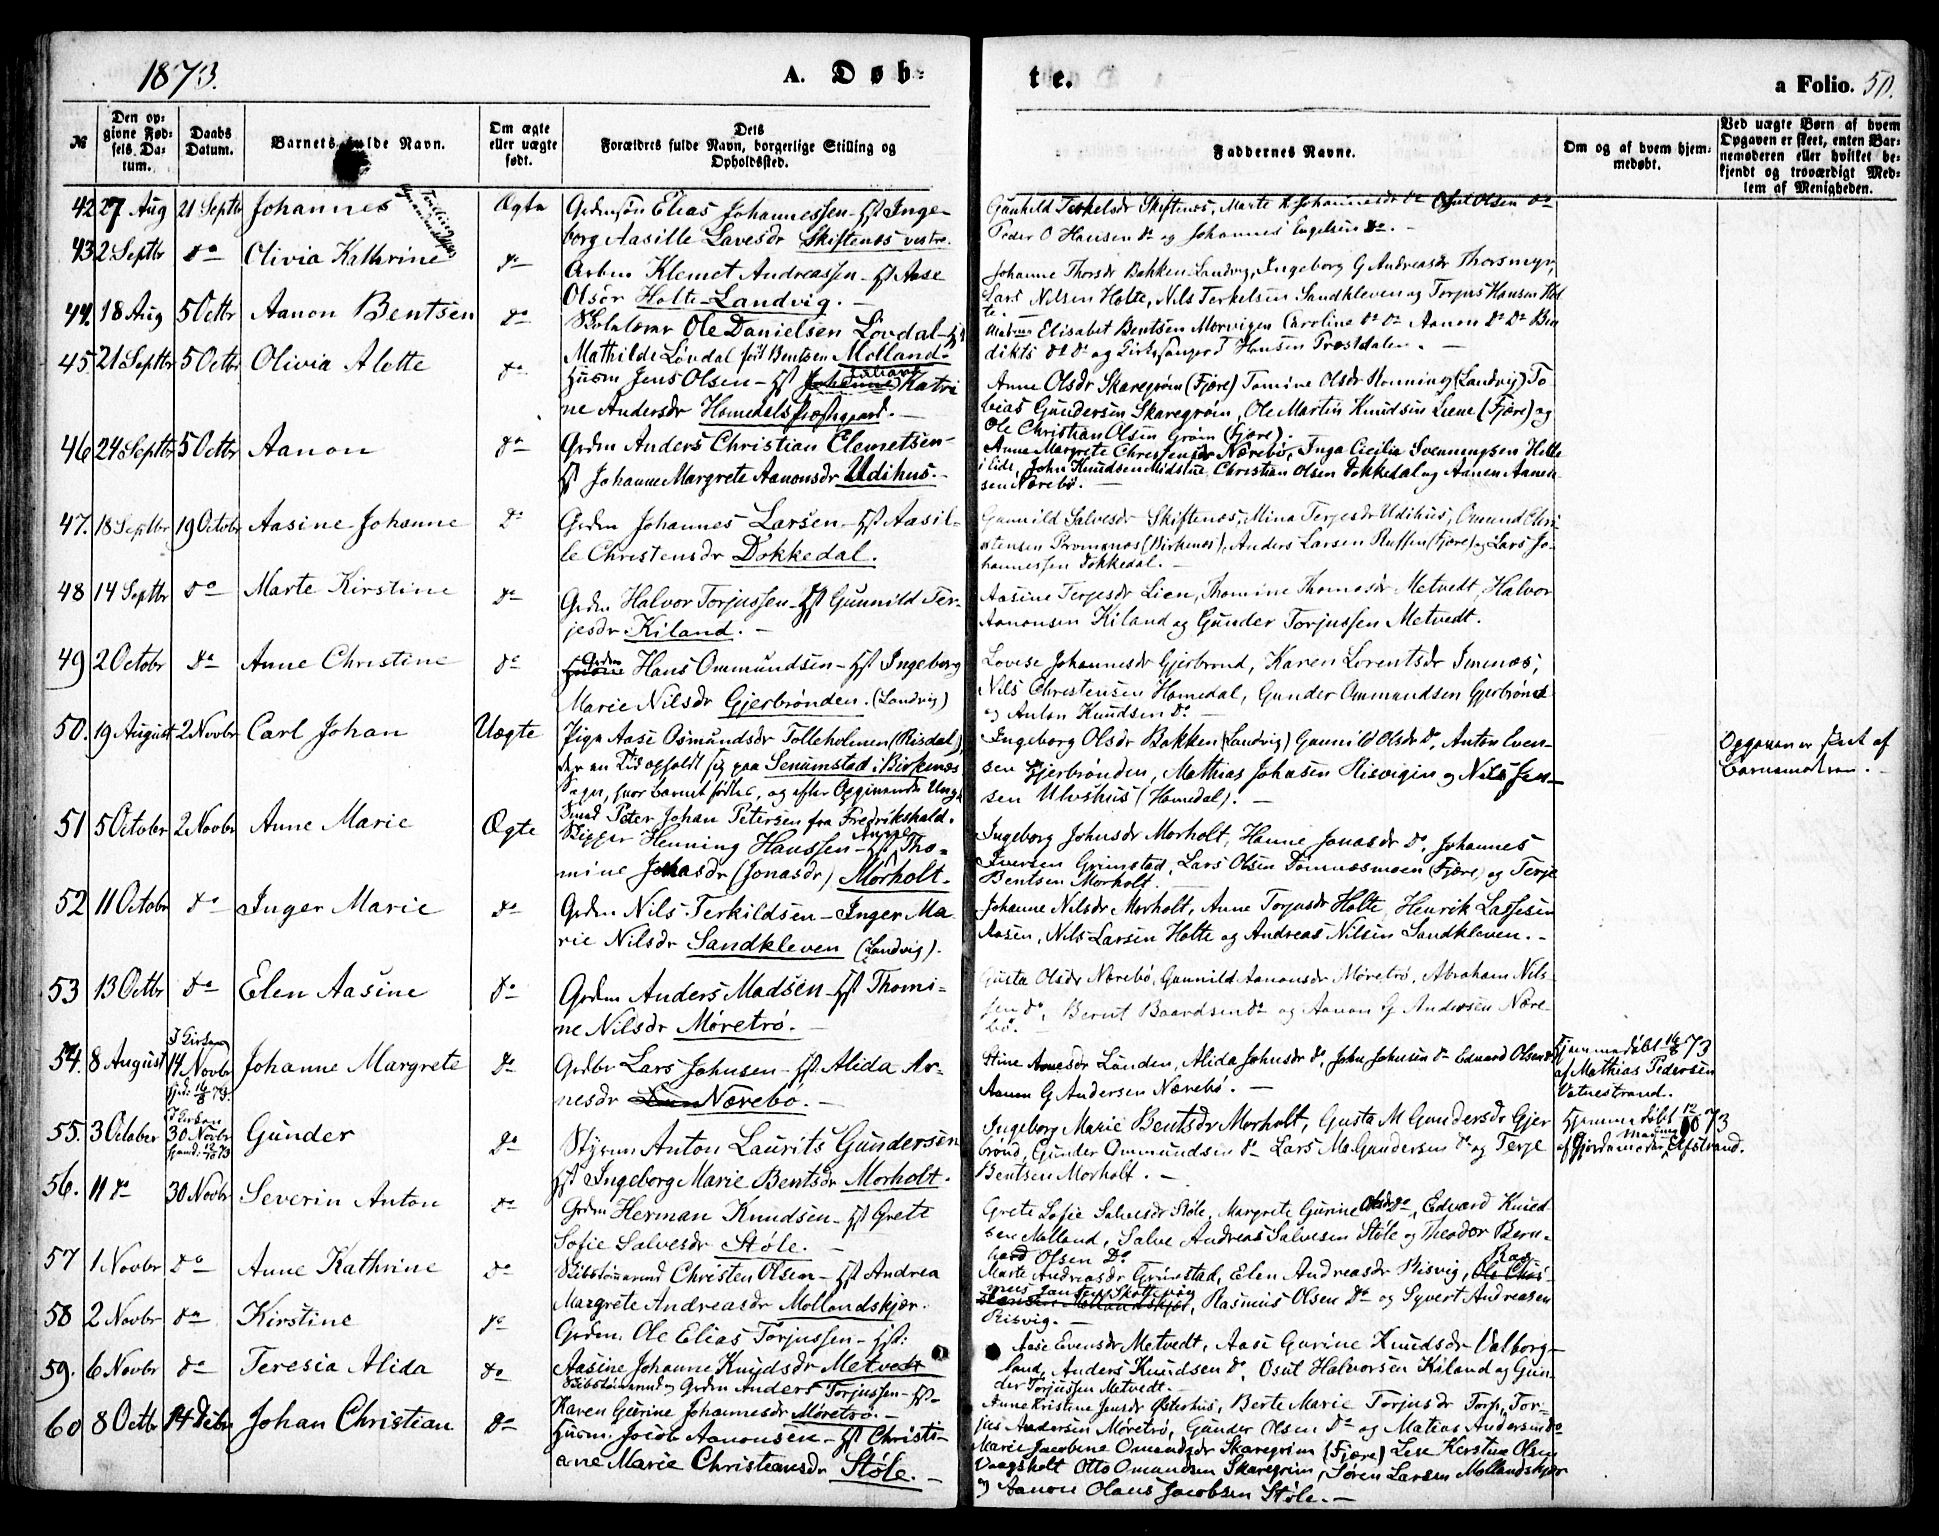 1873.
A. Døb-
te.
a Folio. 50.
№
Den op-
givne Fød-
sels-Da-
tum.
Daabs
Datum.
Barnets fulde Navn.
Om ægte
eller uægte
født.
Dets
Forældres fulde Navn, borgerlige Stilling og
Opholdssted.
Faddernes Navne.
Om og af hvem hjem-
medøbt.
Ved uægte Børn af hvem
Opgaven er skeet, enten Bar-
nemoderen eller hvilket be-
kjendt og troværdigt Med-
lem af Menigheden.
42 27 Aug 21 Septbr Johannes Ægte Grdmsøn Elias Johannessen - Hst Inge-
borg Aasille Lavesdr Skiftenes vestre.
Gunhild Terkelsdr Skiftenes, Marte K Johannesdr Do Osul Olsen Do
Peder O Hansen Do og Johannes Engelsen Do. -
43 2 Septbr do Olivia Kathrine do Arbm Klemet Andreassen - Hst Aase
Olsdr Holte - Landvig. -
Johanne Thorsdr Bakken Landvig, Ingeborg G Andreasdr Thorsmyr,
Lars Nilsen Holte, Nils Terkelsen Sandkleven og Torjus Hansen Hol
te. -
44. 18 Aug 5 Octbr Aanon Bentsen do Skolelærer Ole Danielsen Løvdal - Hst
Mathilde Løvdal født Bentsen Molland.
Elisabet Bentsen Morvigen Caroline Do Do Aanon Do Do Ben
dikts Do Do og Kirkesanger T Hansen Præstdalen. -
45. 21 Septbr 5 Octbr Olivia Alette do Husm Jens Olsen - Hst Johanne Katri
ne Andersdr Homedals Præstegaard. -
Anne Olsdr Skaregrøm (Fjære) Tomine Olsdr Rønning (Landvig) To-
bias Gundersen Skaregrøm, Ole Martin Knudsen Liene (Fjære) og
Ole Christian Olsen Grøm (Fjære).
46 24 Septbr 5 Octbr Aanon do Grdm Anders Christian Clemetsen -
Hst Johanne Margrete Aanonsdr Udihus. -
Anne Margrete Christensdr Nærebø, Inga Cecilia Svenningsen Holte
i Eide, John Knudsen Midstue, Christian Olsen Dokkedal og Aanen Aanen
sen Nærebø. -
47. 18 Septbr 19 Octobr Aasine Johanne Do Grdm Johannes Larsen - Hst Aasil-
le Christensdr Dokkedal.
Gunnild Salvesdr Skiftenes, Mina Terjesdr Udihus, Omund Chri-
stensen Promenes (Birkenes), Anders Larsen Ruffen (Fjære) og Lars Jo-
hannessen Dokkedal. -
48 14 Septbr do Marte Kirstine do Grdm Halvor Torjussen - Hst Gunnild Ter-
jesdr Kiland. -
Aasine Terjesdr Lien, Thomine Thomasdr Metvedt, Halvor
Aanonsen Kiland og Gunder Torjussen Metvedt.
49 2 Octobr do Anne Christine do Grdm Hans Ommundsen - Hst Ingeborg
Marie Nilsdr Gjerbrønden. (Landvig)
Lovise Johannesdr Gjerbrond, Karen Lorentsdr Imenæs,
Nils Christensen Homedal, Gunder Ommundsen Gjerbrønd
og Anton Knudsen Do -
50. 19 August 2 Novbr Carl Johan Uægte Pige Aase Osmundsdr Tolleholmen (Risdal)
der en Tid opholdt sig paa Senumstad i Birkenæs
Sogn, hvor Barnet fødtes, og efter Opgivende Ung-
Smed Peter Johan Petersen fra Fredrikshald.
Ingeborg Olsdr Bakken (Landvig) Gunnild Olsdr Do, Anton Even-
sen Gjerbrønden, Mathias Johnsen Risvigen og Nils Jen-
sen Ulvehus (Homedal). -
Opgaven er skeet af
Barnemoderen. -
51 5 Octobr 2 Novbr Anne Marie Ægte Skipper Henning Hanssen - Hst Tho-
mine Johnsdr (Jonasdr) Morholt.
Ingeborg Johnsdr Morholt, Hanne Jonasdr Do, Johannes
Iversen Grimstad, Lars Olsen Dømnæsmoen (Fjære) og Terje
Bentsen Morholt.
52 11 Octobr do Inger Marie do Grdm Nils Terkildsen - Inger Ma
rie Nilsdr Sandkleven (Landvig).
Johanne Nilsdr Morholt, Anne Torjusdr Holte, Henrik Lassesen
Aasen, Nils Larsen Holte og Andreas Nilsen Sandkleven. -
53 13 Octbr do Elen Aasine do Grdm Anders Madsen - Hst Thomi-
ne Nilsdr Møretrø. -
Gusta Olsdr Nærebø, Gunnild Aanonsdr Møretrø, Abraham Nils-
sen do, Bernt Baardsen do og Aanon G Andersen Nære
bø. -
54. 8 August I Kirken 14 Novbr hjd: 16/8 73. Johanne Margrete do Grdbr Lars Johnsen - Hst Alida Ar-
nesdr Nærebo. -
Stine Arnesdr Lunden, Alida Johnsdr do, John Johnsen do Edvard Olsen do
Aanon G Andersen Nærebø. -
Hjemmedøbt 16/8 73
af Mathias Pedersen
Vatnestrand.
55. 3 October I Kirken 30 Novbr hjemd: 12/10 73 Gunder do Styrm Anton Laurits Gundersen
Hst Ingeborg Marie Bentsdr Morholt.
Ingeborg Marie Bentsdr Morholt, Gusta M Gundersdr Gjer
brønd, Gunder Ommundsen do Lars M. Gundersen do og Terje
Bentsen Morholt. -
Hjemmedøbt 12/10 73
af Gjordemoder Efstrand.
56. 11 do 30 Novbr Severin Anton do Grdm Herman Knudsen - Hst Grete
Sofie Salvesdr Støle. -
Grete Sofie Salvesdr Støle, Margrete Gurine Olsdr do, Edvard Knud
sen Molland, Salve Andreas Salvesen Støle og Theodor Bern-
hard Olsen Do
57 1 Novbr do Anne Kathrine do Skibstømmermd Christen Olsen - Hst Andrea
Margrete Andreasdr Mollandskjær.
Marte Andreasdr Grimstad, Elen Andreasdr Risvig, Ras-
mus Jansen Skottevig, Rasmus Olsen do og Syvert Andreasen
Risvig. -
58 2 Novbr do Kirstine do Grdm. Ole Elias Torjussen - Hst:
Aasine Johanne Knudsdr Metvedt
Aase Evensdr Metvedt, Aase Gurine Knudsdr Valborg-
land, Anders Knudsen do, Osul Halvorsen Kiland og Gun-
der Torjussen Metvedt. -
59. 6 Novbr do Teresia Alida do Skibstømmermd og Grdm Anders Torjussen - Hst
Karen Gurine Johannesdr Møretrø. -
Anne Kristine Jensdr Østerhus, Berte Marie Torjusdr Torp, Tor-
jus Andersen Møretrø, Gunder Olsen do og Matias Andersen do
60 8 Octbr 14 Debr Johan Christian do Husm. Jacob Aanonsen - Hst Christi-
ane Marie Christensdr Støle. -
Marie Jacobine Omundsdr Skaregrøm (Fjære) Lise Kirstine Olsen
Vaagsholt Otto Omundsen Skaregrøm, Søren Larsen Mollandskjær
og Aanon Olaus Jacobsen Støle. -